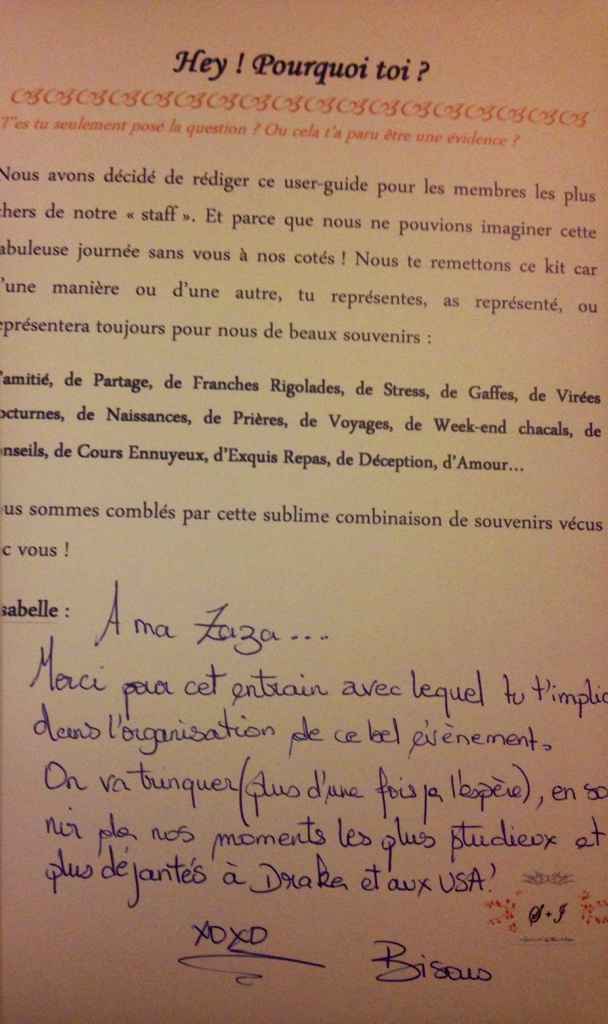 Hey ! Pourquoi toi ?
T'es tu seulement posé la question ? Ou cela t'a paru être une évidence ?
Nous avons décidé de rédiger ce user-guide pour les membres les plus
hers de notre « staff ». Et parce que nous ne pouvions imaginer cette
abuleuse journée sans vous à nos cotés ! Nous te remettons ce kit car
'une manière ou d'une autre, tu représentes, as représenté, ou
eprésentera toujours pour nous de beaux souvenirs :
'amitié, de Partage, de Franches Rigolades, de Stress, de Gaffes, de Virées
octurnes, de Naissances, de Prières, de Voyages, de Week-end chacals, de
nseils, de Cours Ennuyeux, d'Exquis Repas, de Déception, d'Amour...
us sommes comblés par cette sublime combinaison de souvenirs vécus
c vous !
sabelle : A ma Zaza....
Merci pour cet entrain avec lequel tu t'impli
dans l'organisation de ce bel évènement.
On va trinquer (plus d'une fois je l'espère), en so
nir de nos moments les plus studieux et
plus déjantés à Dakar et aux USA!
S+I
XOXO
Bisous